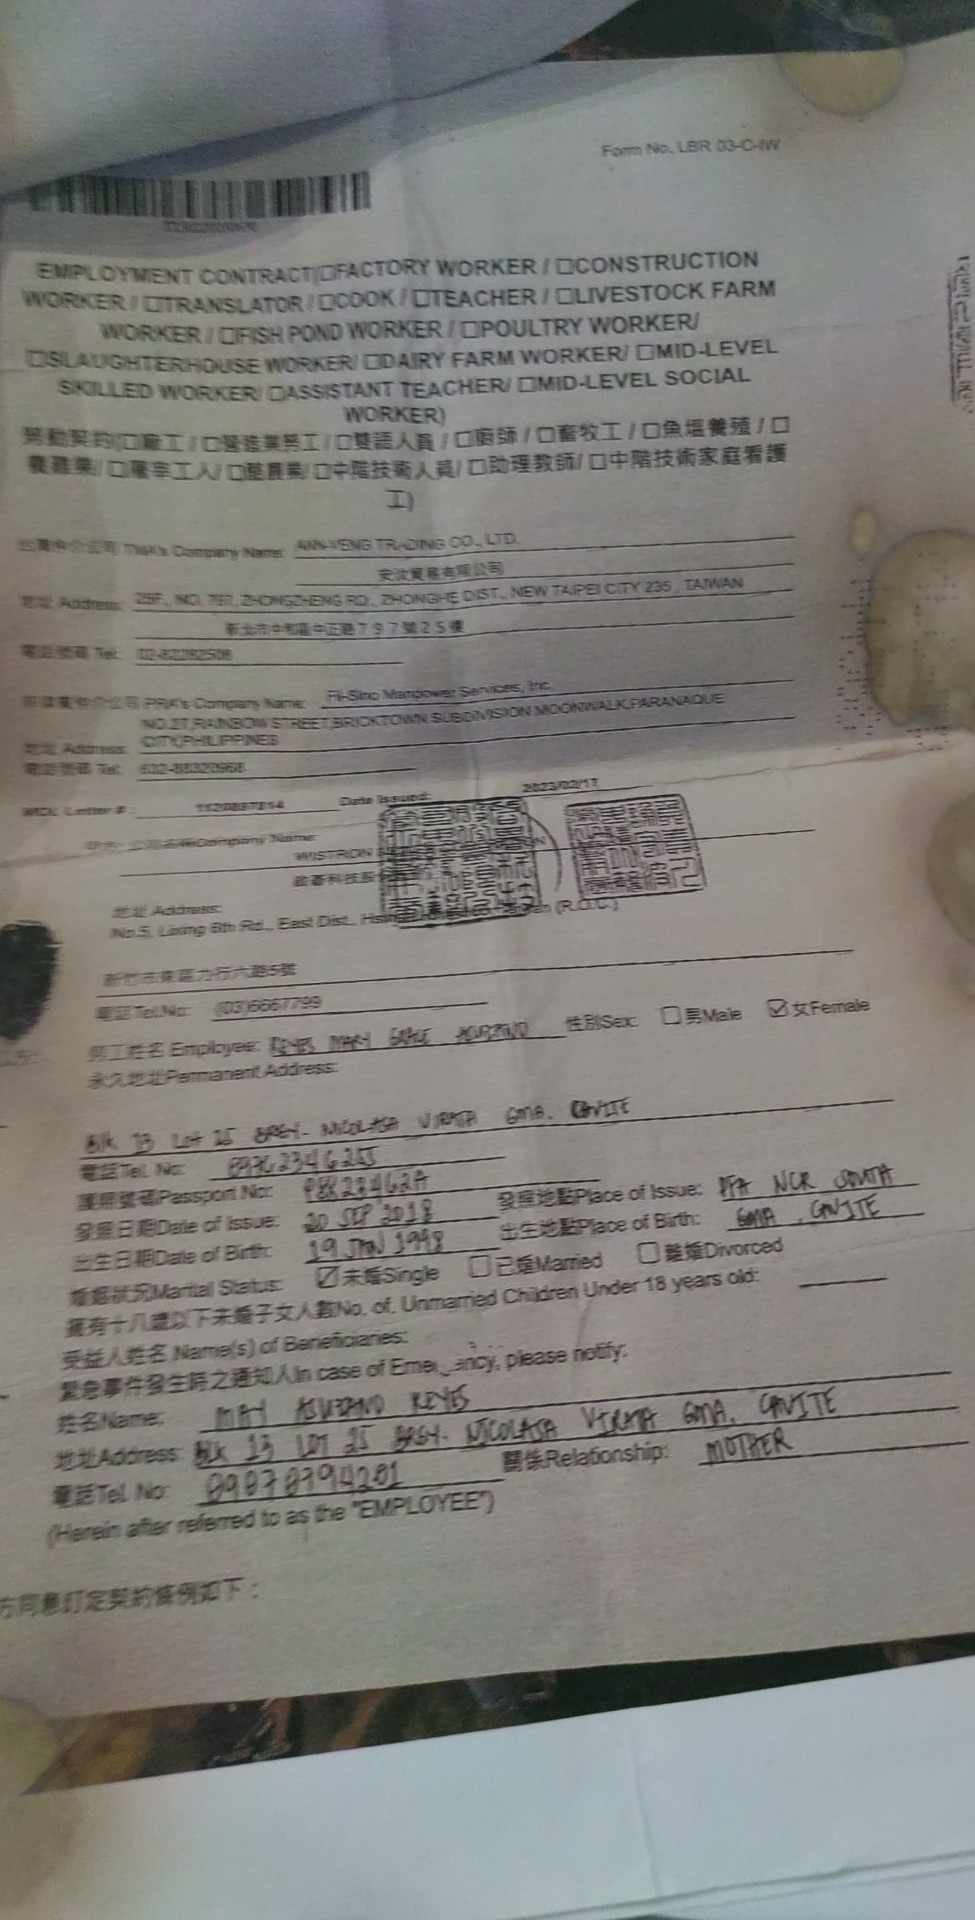 Form No. LBR 03-C-IW
EMPLOYMENT CONTRACT(□FACTORY WORKER / □CONSTRUCTION
WORKER / □TRANSLATOR / □COOK / □TEACHER / □LIVESTOCK FARM
WORKER / □FISH POND WORKER / □POULTRY WORKER/
□SLAUGHTERHOUSE WORKER/ □DAIRY FARM WORKER/ □MID-LEVEL
SKILLED WORKER/ □ASSISTANT TEACHER/ □MID-LEVEL SOCIAL
WORKER)
勞動契約(□廠工 / □營造業勞工 / □雙語人員 / □廚師 / □畜牧工 / □魚塭養殖 / □
養雞業/ □屠宰工人/ □酪農業/ □中階技術人員/ □助理教師/ □中階技術家庭看護
工)
Company Name: ANN-VENG TRADING CO., LTD.
有限公司
地址 Address: 25F., NO. 797, ZHONGZHENG RD., ZHONGHE DIST., NEW TAIPEI CITY 235 , TAIWAN
新北市中和區中正路797號25樓
電話號碼 Tel: 02-82282508
PRA's Company Name: Fil-Sino Manpower Services, Inc.
NO.27,RAINBOW STREET,BRICKTOWN SUBDIVISION MOONWALK,PARANAQUE
地址 Address: CITY,PHILIPPINES
電話號碼 Tel: 632-88320968
MOL Letter # : Date Issued: 2023/02/17
Company Name:
WISTRON
啟碁科技股
地址 Address:
No.5, Lixing 6th Rd., East Dist., (R.O.C.)
新竹市東區力行六路5號
電話Tel.No: (03)6667799
勞工姓名 Employee: REYES MARY GRACE ASUZANO 性別Sex: □男Male ☑女Female
永久地址Permanent Address:
Blk 13 Lot 25 BRGY. NICOLASA VIRATA GMA. CAVITE
電話Tel. No: 09362346255
護照號碼Passport No: P8K23462A
發照日期Date of Issue: 20 SEP 2018 發照地點Place of Issue: DFA NCR SOUTH
出生日期Date of Birth: 19 JAN 1998 出生地點Place of Birth: GMA , CAVITE
婚姻狀況Marital Status: ☑未婚Single □已婚Married □離婚Divorced
擁有十八歲以下未婚子女人數No. of. Unmarried Children Under 18 years old:
受益人姓名 Name(s) of Beneficiaries:
緊急事件發生時之通知人In case of Emergency, please notify:
姓名Name: MAY ASUZANO REYES
地址Address: Blk 13 LOT 25 BRGY. NICOLASA VIRATA GMA. CAVITE
電話Tel. No: 09878394201 關係Relationship: MOTHER
(Herein after referred to as the "EMPLOYEE")
方同意訂定契約條例如下：